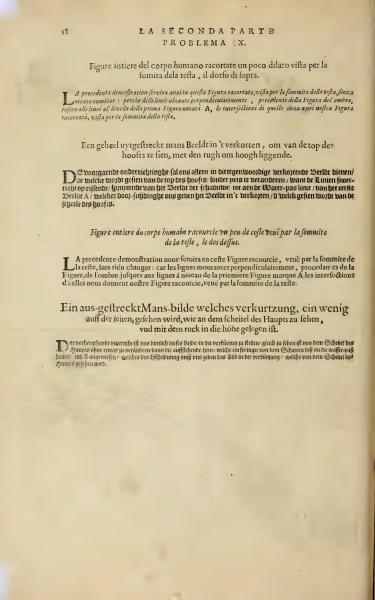 18 LA SECONDA PARTE
PROBLEMA IX.
Figure intiere del corpo humano racortate un poco dilato vista per la
somita dela testa, il dorso di sopra.
LA precedente demostration servira anci in questa Figura racortata, vista per la sommita della testa, senza
mente cambiar: perche delli linei alzante perpendicularmente, procedenti della Figura del ombre,
insino alle linei al livello della prima Figura notatà A, le intersessioni di quelle dona a qui nostra Figura
racortatà, vista per le sommita della testa.
Een geheel uytgestreckt mans Beeldt in 't verkorten, om van de top des
hoofts te sien, met den rugh om hoogh liggende.
DE voorgaende onderrichtinghe sal ons alleen in dit tegenwoordige verkortende Beeldt dienen/
de welcke wordt gesien van de top des hoofts/ sonder yets te veranderen: want de Linien
recht op rijsende/ spruytende van het Beeldt der schaduwe/ tot aen de Water-pas linie/ van het eerste
Beeldt A/ welcker door-snijdinghe ons geven het Beeldt in 't verkorten/ d'welck gesien wordt van de
scheele des hoofts.
Figure entiere du corps humain racourcie un peu de coste veuë par la sommite
de la teste, le dos dessus.
LA precedente demonstration nous servira en ceste Figure racourcie, veuë par la sommite de
la teste, sans rien changer: car les lignes montantes perpendiculairement, procedantes de la
Figure, de l'ombre jusques aux lignes à niveau de la priemiere Figure marque A les intersections
d'celles nous donnent nostre Figure racourcie, veuë par la sommite de la teste.
Ein aus-gestreckt Mans-bilde welches verkurtzung, ein wenig
auff der seiten, gesehen wird, wie an dem scheitel des Haupts zu sehen,
vnd mit dem ruck in die höhe gelegen ist.
DEr vorhergehende unterricht ist uns dienlich dieses Bilde in die verkürtzung zu stellen/ gleich zu sehen ist von dem Scheitel des
Haupts ohne etwas zu verändern dann die auffstehende linie/ welche entspringt von dem Schatten biß an die wasser-paß
linien/ mit A angewiesen/ welcher durchschneidung uns geben das Bild in der verkürtzung/ welche von dem Scheitel des
Haupts gesehen wird.